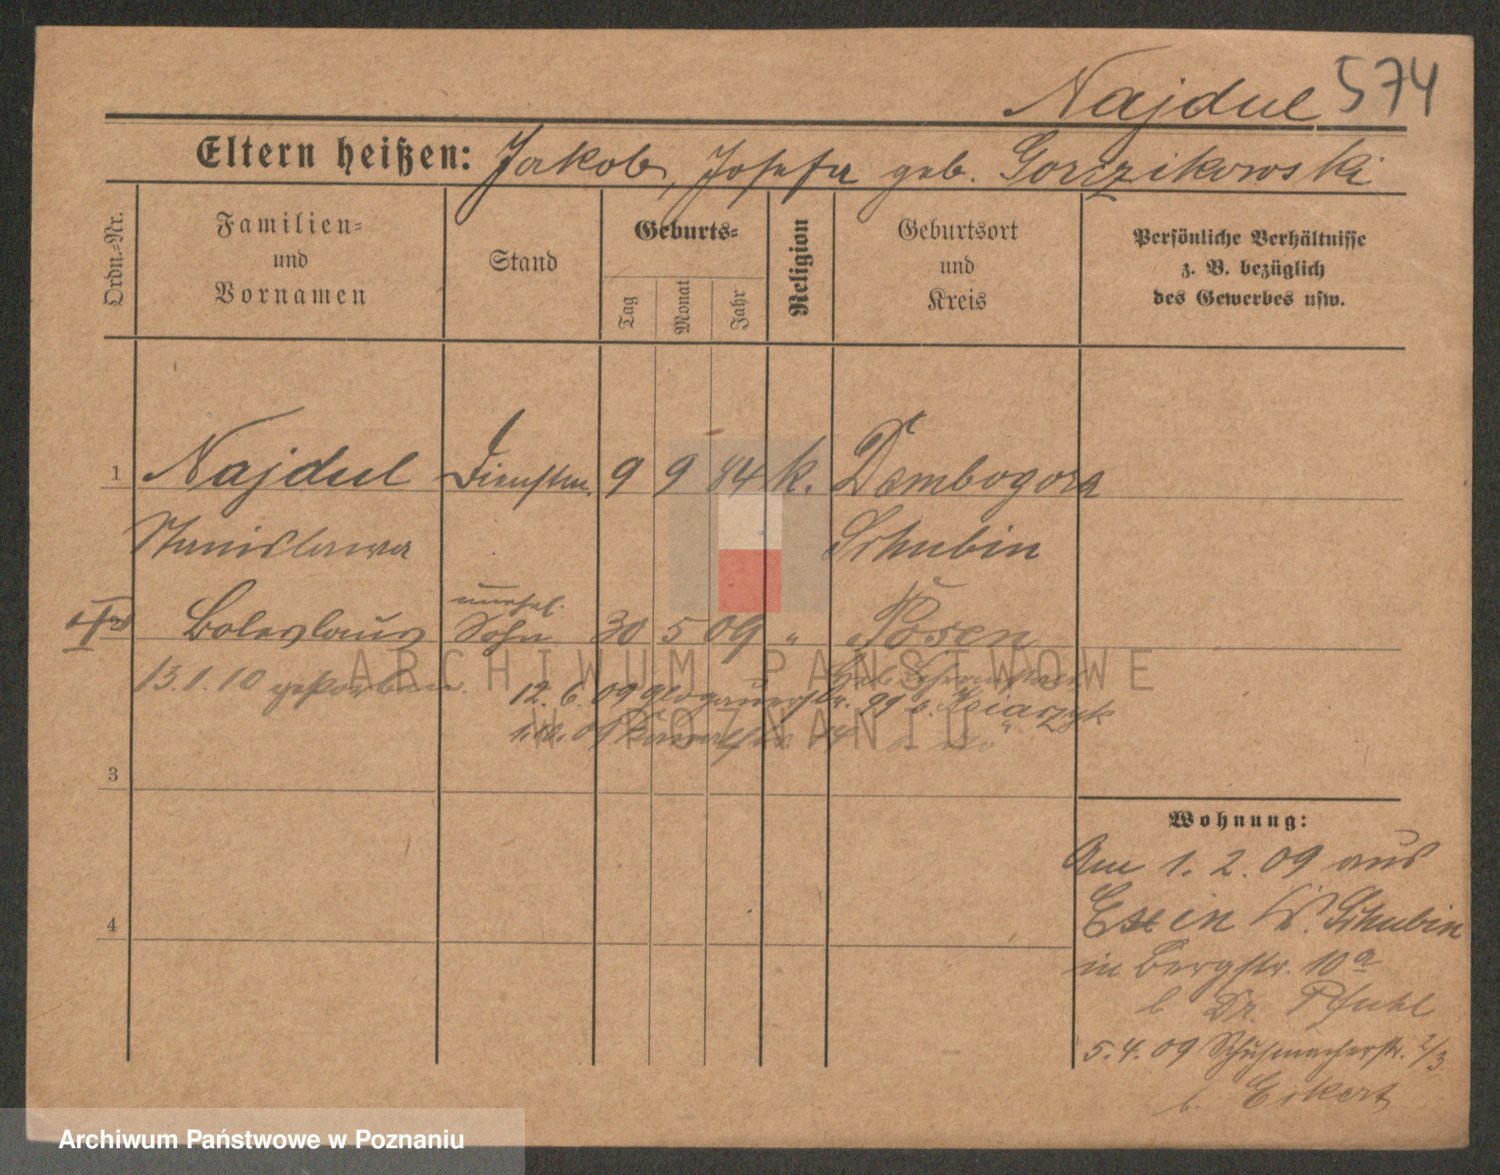 Najdul 574
Eltern heißen: Jakob, Josefa geb. Gorczikowski
Ordn.-Nr.
Familien-
und
Vornamen
Stand
Geburts-
Tag
Monat
Jahr
Religion
Geburtsort
und
Kreis
Persönliche Verhältnisse
z. B. bezüglich
des Gewerbes usw.
1 Najdul Dienstm. 9 9 84 k. Dembogora
Stanislawa Schubin
Boleslaus unehel. Sohn 30 5 09 " Posen
13.1.10 gestorben
12. 6. 09 Glogauerstr. 99 b. Ksiarzyk
3
4
Wohnung:
Am 1. 2. 09 aus
Exin Kr. Schubin
in Bergstr. 10a
b Dr. Pfuhl
5. 4. 09 Schuhmacherstr. 2/3
b. Eikert
ARCHIWUM PAŃSTWOWE
W POZNANIU
Archiwum Państwowe w Poznaniu